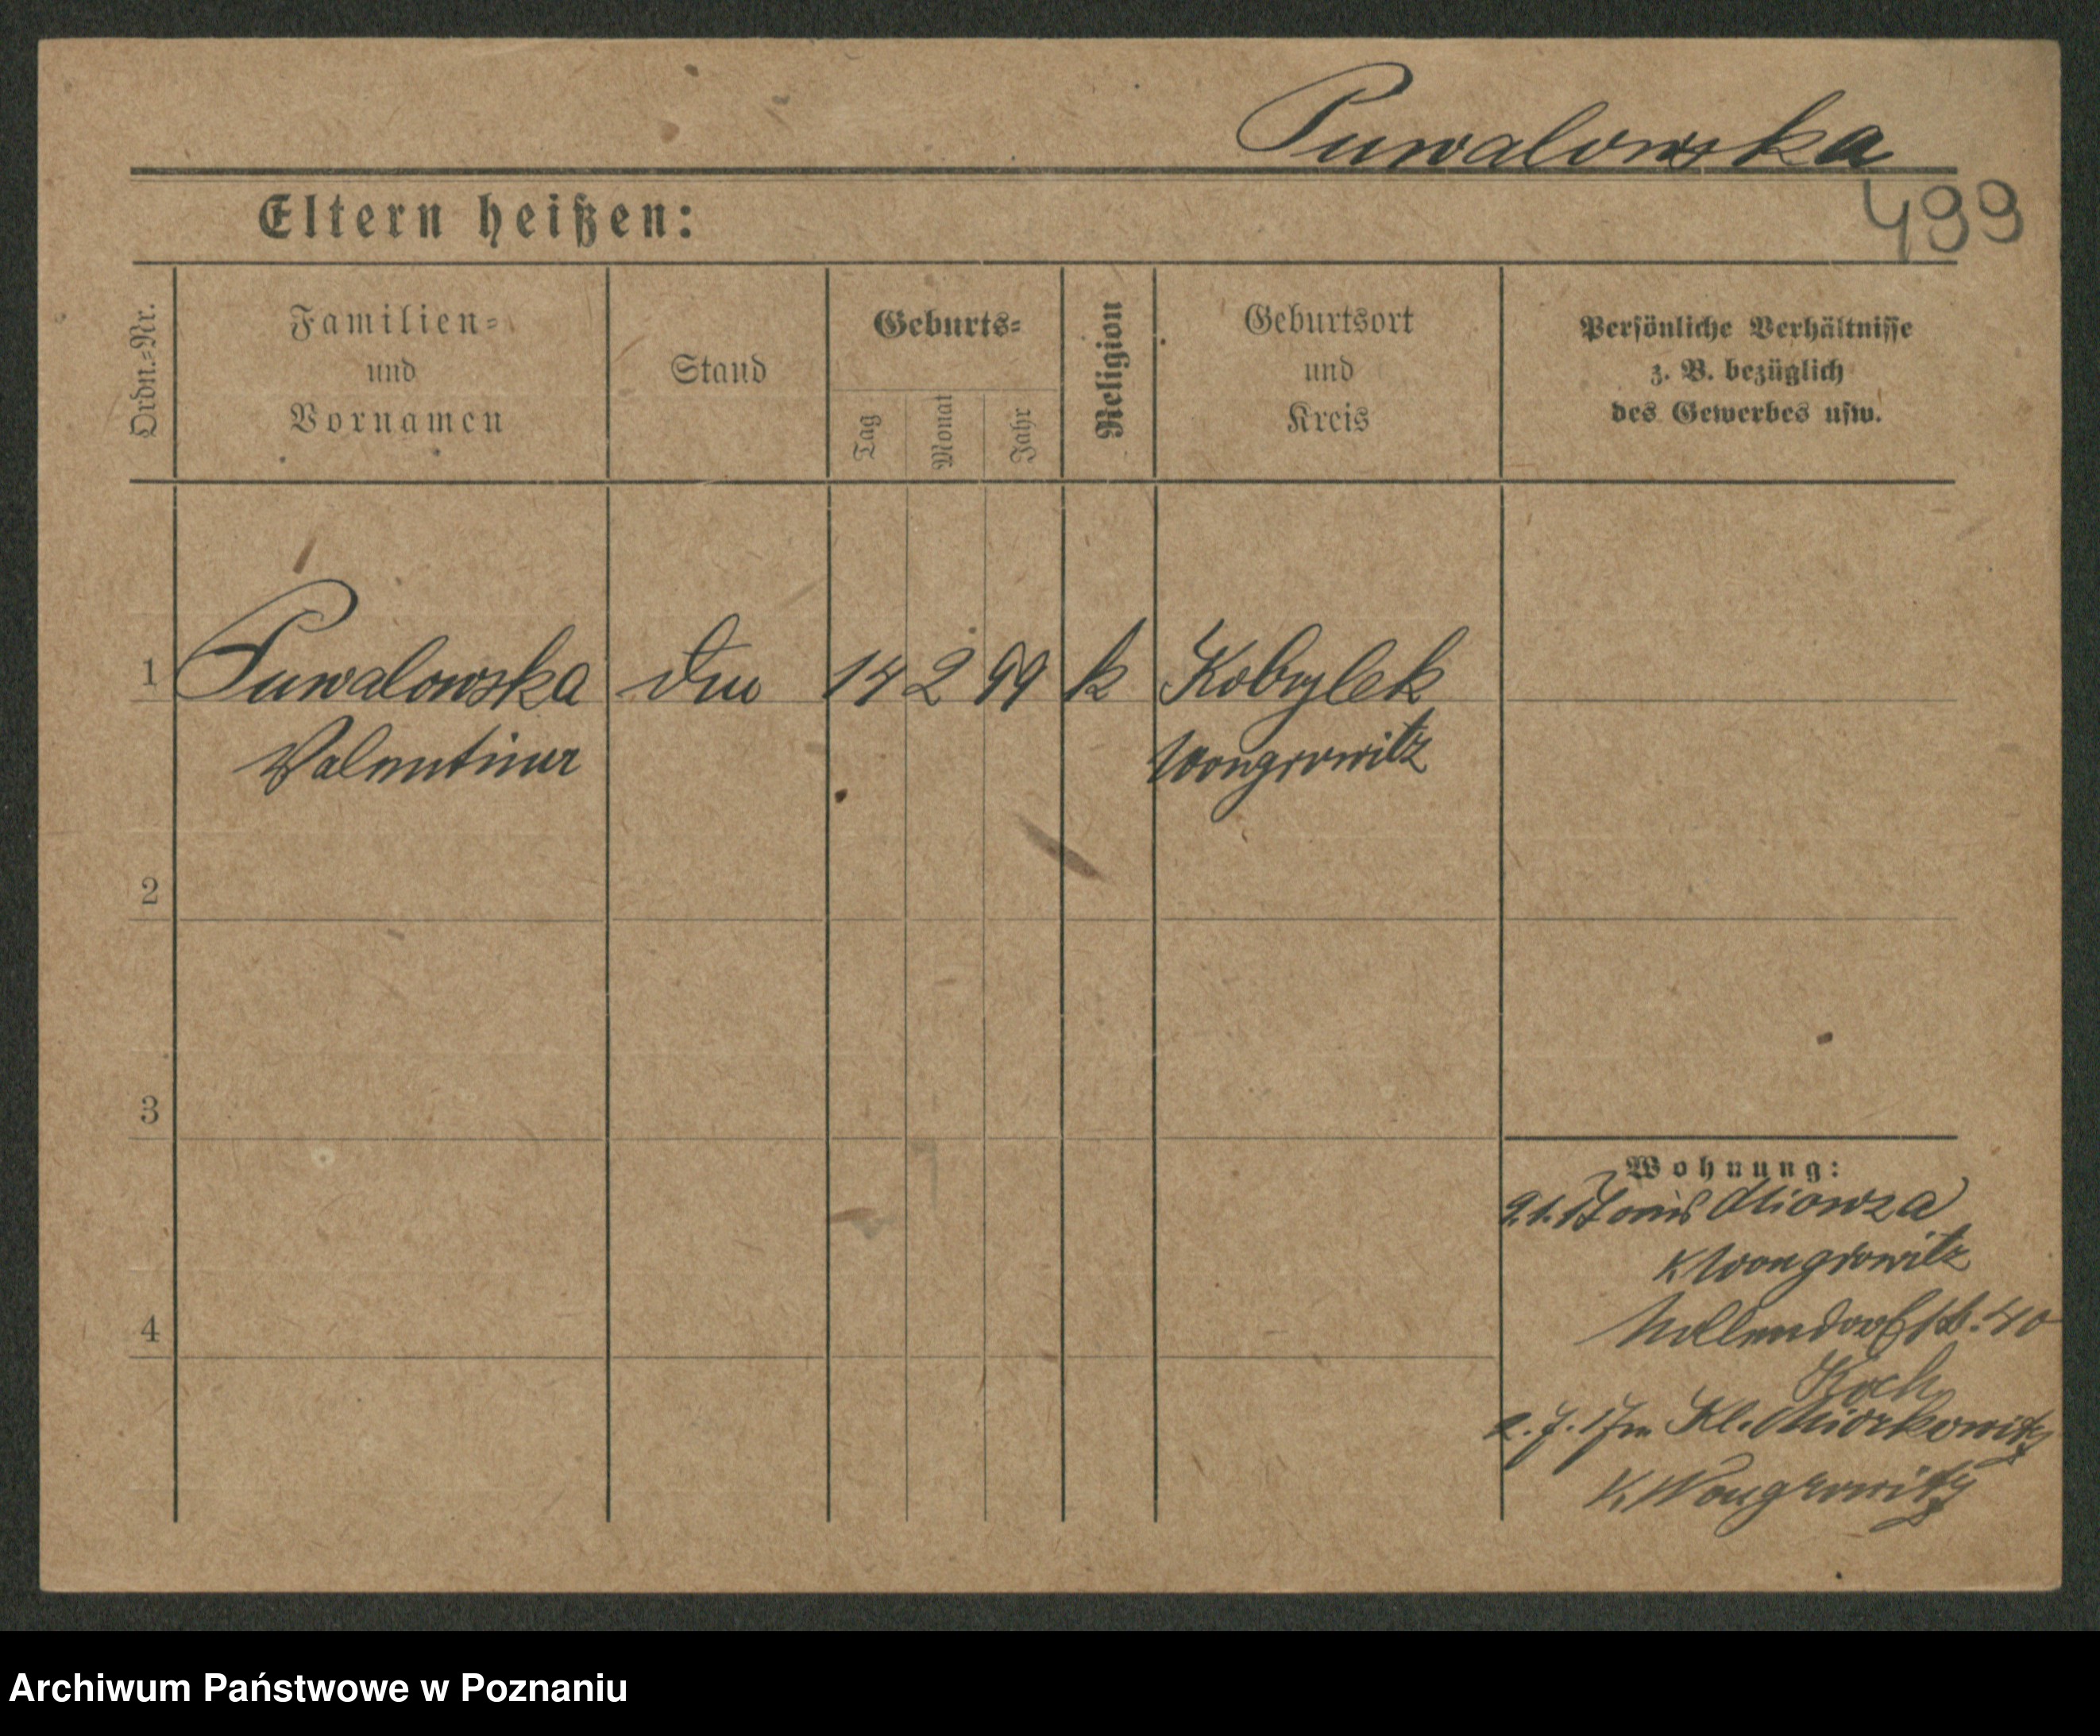 Puwalowska
499
Eltern heißen:
Ordn.=Nr.
Familien=
und
Vornamen
Stand
Geburts=
Tag
Monat
Jahr
Religion
Geburtsort
und
Kreis
Persönliche Verhältnisse
z. B. bezüglich
des Gewerbes usw.
1 Puwalowska 14 2 99 k Kobylek
Valentine Wongrowitz
2
3
4
Wohnung:
K Wongrowitz
Nollendorfstr. 40
Koch
2. 7. 17 Kl. Mirkowitz
K. Wongrowitz
Archiwum Państwowe w Poznaniu